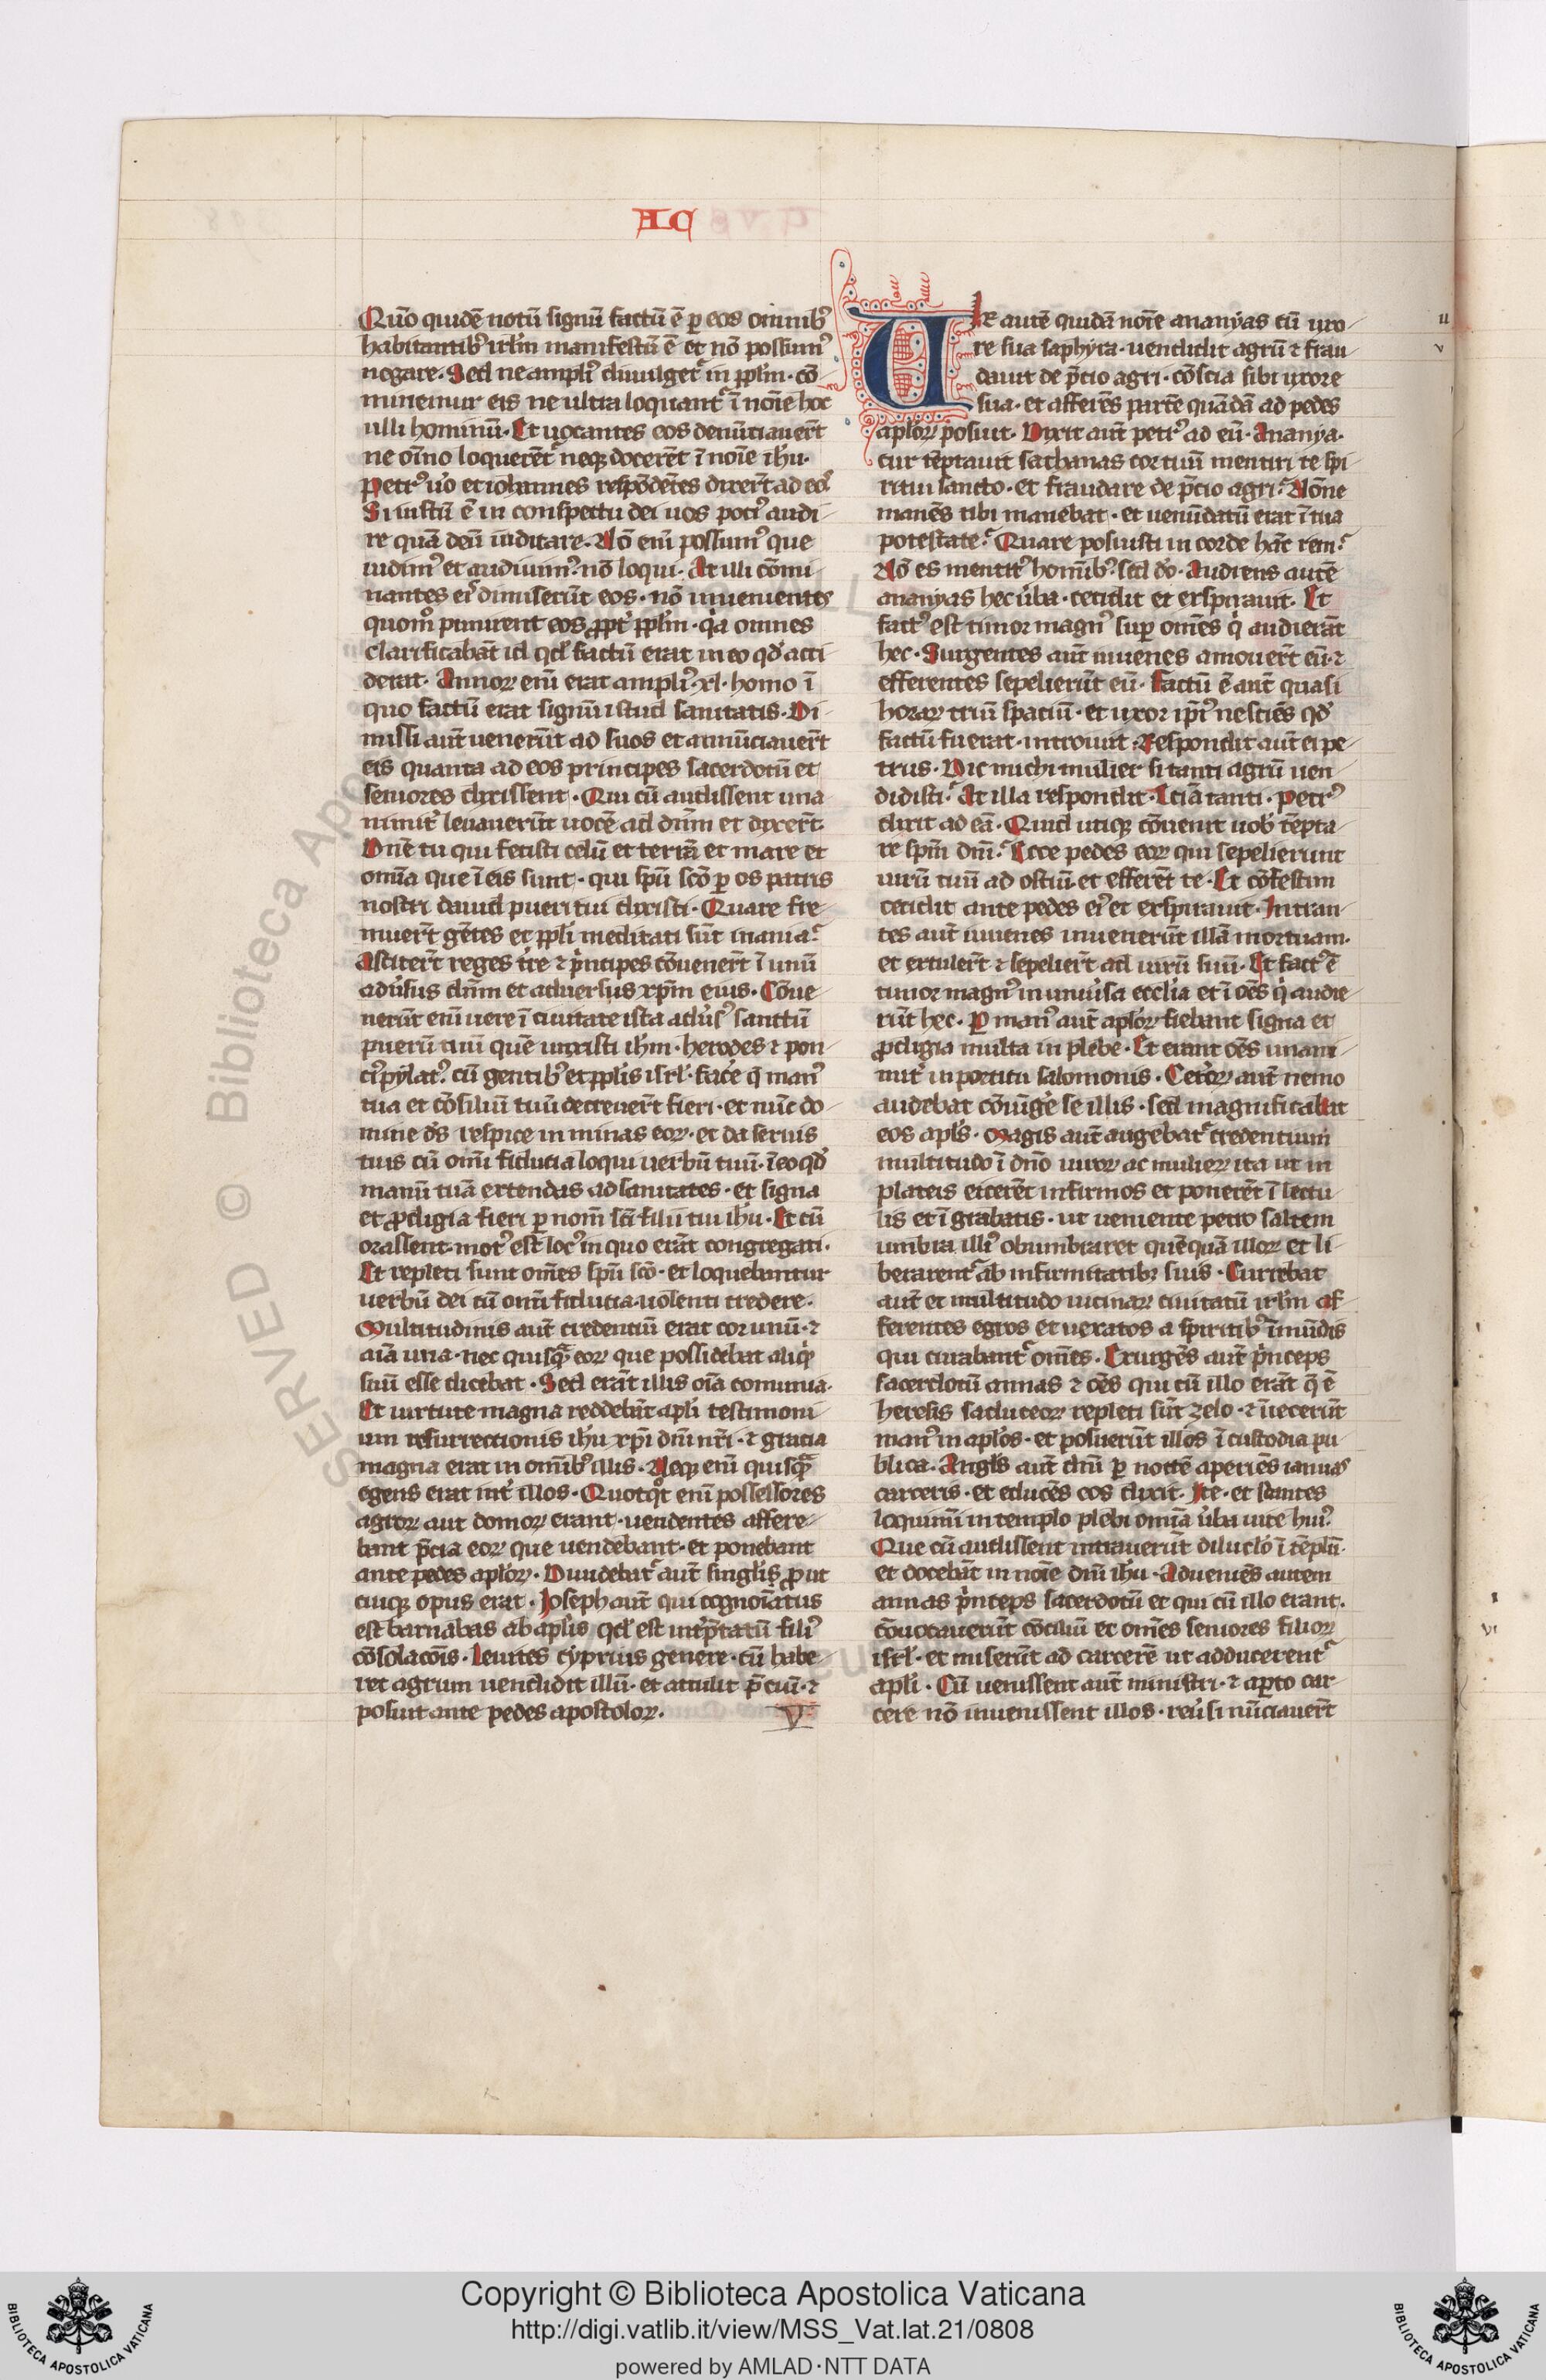 AC
Qm̄o quidē notū signū factū ē ꝑ eos omnibꝰ
habitantibꝰ irl̄m manifestū ē et nō possumꝰ
negare. Sed ne ampliꝰ diuulget᷑ in ppl̄m. cō
minemur eis ne ultra loquant᷑ ī noīe hoc
ulli hominū. Et uocantes eos denūciauer̄t
ne oīno loquerēt᷑ neqꝫ docerēt ī noīe ihū.
Petrꝰ u̓o et iohannes respōdētes dixer̄t ad eoſ
Si iustū ē in conspectu dei uos potiꝰ audi
re quā deū iudicare. Nō enī possumꝰ que
uidimꝰ et audiuimꝰ nō loqui. At illi cōmi
nantes eiꝰ dimiserūt eos. nō inuenientes
quom̊ punirent eos ꝓpt̓ ppl̄m. q̓a omnes
clarificabāt id qd̓ factū erat in eo qd̓ acci
derat. Annoꝝ enī erat ampliꝰ xl. homo ī
quo factū erat signū istud sanitatis. Di
missi aūt uenerūt ad suos et annūciauer̄t
eis quanta ad eos principes sacerdotū et
seniores dixissent. Qui cū audissent una
nimit̓ leuauerūt uocē ad dn̄m et dixer̄t.
Dn̄e tu qui fecisti celū et terrā et mare et
omīa que ī eis sunt. qui spū scō ꝑ os patris
nostri dauid pueri tui dixisti. Quare fre
muer̄t gētes et ppl̄i meditati sūt inania.
Astiter̄t reges t̓re ⁊ p̓ncipes cōuener̄t ī unū
adu̓sus dn̄m et aduersus xp̄m eius. Cōue
nerūt enī uere ī ciuitate ista adu̓sꝰ sanctū
puerū tuū quē unxisti ihm̄. herodes ⁊ pon
ciꝰ pylatꝰ. cū gentibꝰ et ppl̄is isrl̓. fac̓e q̄ manꝰ
tua et cōsiliū tuū decreuer̄t fieri. et nūc do
mine dꝰs respice in minas eoꝝ. et da seruis
tuis cū omī fiducia loqui uerbū tuū. ī eo qd̓
manū tuā extendas ad sanitates. et signa
et ꝓdigia fieri ꝑ nom̄ scī filii tui ihū. Et cū
orassent motꝰ est locꝰ in quo erāt congregati.
Et repleti sunt om̄es spū scō. et loquebantur
uerbū dei cū omī fiducia uolenti credere.
Multitudinis aūt credentiū erat cor unū. ⁊
aīa una. nec quisqᷓ eoꝝ que possidebat aliq̓d
suū esse dicebat. Sed erāt illis oīa comunia.
Et uirtute magna reddebāt apl̓i testimoni
um resurrectionis ihū xp̄i dn̄i nr̄i. ⁊ gracia
magna erat in omībꝰ illis. Neqꝫ enī quisqᷓ
egens erat int̓ illos. Quotqͦt enī possessores
agroꝝ aut domoꝝ erant. uendentes affere
bant p̄cia eoꝝ que uendebant. et ponebant
ante pedes apl̓oꝝ. Diuidebat᷑ aūt singl̓is ꝓut
cuiqꝫ opus erat. Joseph aūt qui cognoīatus
est barnabas ab apl̓is qd̓ est int̓p̄tatū filiꝰ
cōsolacōis. leuites cyprius genere. cū habe
ret agrum uendidit illū. et attulit p̄ciū. ⁊
posuit ante pedes apostoloꝝ.
V
Uir autē quidā noīe ananyas cū uxo
re sua saphyra. uendidit agrū ⁊ frau
dauit de p̄cio agri. cōscia sibi uxore
sua. et afferēs partē quādā ad pedes
apl̓oꝝ posuit. Dixit aūt petrꝰ ad eū. Ananya.
cur tēptauit sathanas cor tuū mentiri te spi
ritui sancto. et fraudare de p̄cio agri. Nōne
manēs tibi manebat. et uenūdatū erat ī tua
potestate. Quare posuisti in corde hāc rem.
Nō es mentitꝰ homībꝰ. sed dō. Audiens autē
ananyas hec u̓ba. cecidit et expirauit. Et
factꝰ est timor magnꝰ sup omēs q̓ audierāt
hec. Surgentes aūt iuuenes amouer̄t eū. ⁊
efferentes sepelierūt eū. Factū ē aūt quasi
horaꝝ triū spaciū. et uxor ip̄iꝰ nesciēs qd̓
factū fuerat. introiuit. Respondit aūt ei pe
trus. Dic michi mulier si tanti agrū uen
didisti. At illa respondit. Eciā tanti. Petrꝰ
dixit ad eā. Quid utiqꝫ cōuenit uob̓ tēpta
re spm̄ dn̄i. Ecce pedes eoꝝ qui sepelierunt
uirū tuū ad ostiū. et efferēt te. Et cōfestim
cecidit ante pedes eiꝰ et expirauit. Intran
tes aūt iuuenes inuenerūt illā mortuam.
et extuler̄t ⁊ sepelier̄t ad uirū suū. Et factꝰ ē
timor magnꝰ in uniu̓sa eccl̓ia et ī oēs q̓ audie
rūt hec. Ꝑ manꝰ aūt apl̓oꝝ fiebant signa et
ꝓdigia multa in plebe. Et erant oēs unani
mit̓ in porticu salomonis. Ceter̓oꝝ aūt nemo
audebat cōiūg̓e se illis. sed magnificabat
eos apl̓s. Magis aūt augebat᷑ credentium
multitudo ī dn̄o uiroꝝ ac mulieꝝ ita ut in
plateis eicerēt infirmos et ponerēt ī lectu
lis et ī grabatis. ut ueniente petro saltem
umbra illiꝰ obumbraret quēquā illoꝝ et li
berarent᷑ ab infirmitatibꝫ suis. Currebat
aūt et multitudo uicinaꝝ ciuitatū irl̄m af
ferentes egros et uexatos a spiritibꝰ īmūdis
qui curabant᷑ om̄es. Exurgēs aūt p̓nceps
sacerdotū annas ⁊ oēs qui cū illo erāt q̄ ē
heresis saduceoꝝ repleti sūt zelo. ⁊ īiecerūt
manꝰ in apl̓os. et posuerūt illos ī custodia pu
blica. Angl̓s aūt dn̄i ꝑ noctē aperiēs ianuas
carceris. et educēs eos dixit. Ite. et stantes
loquimī in templo plebi omīa u̓ba uite huiꝰ.
Que cū audissent intrauerūt diluclo̓ ī tēplū.
et docebāt in noīe dn̄i ihū. Adueniēs autem
annas p̓nceps sacerdotū et qui cū illo erant.
cōuocauerūt cōciliū et om̄es seniores filioꝝ
isrl̓. et miserūt ad carcerē ut adducerent᷑
apl̓i. Cū uenissent aūt ministri. ⁊ aꝑto car
cere nō inuenissent illos. reu̓si nūciauer̄t
u
v
© Biblioteca Apo
SERVED
Copyright © Biblioteca Apostolica Vaticana
http://digi.vatlib.it/view/MSS_Vat.lat.21/0808
powered by AMLAD·NTT DATA
BIBLIOTECA APOSTOLICA VATICANA
BIBLIOTECA APOSTOLICA VATICANA